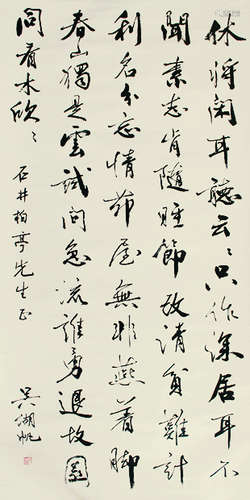 休將閑耳聽云〻只作深居耳不
聞素志肯隨節改清貧難計
利名分忘情茆屋無非燕著脚
春山獨是雲試問急流誰勇退故園
問看木欣〻 石井柏亭先生正
吴湖帆